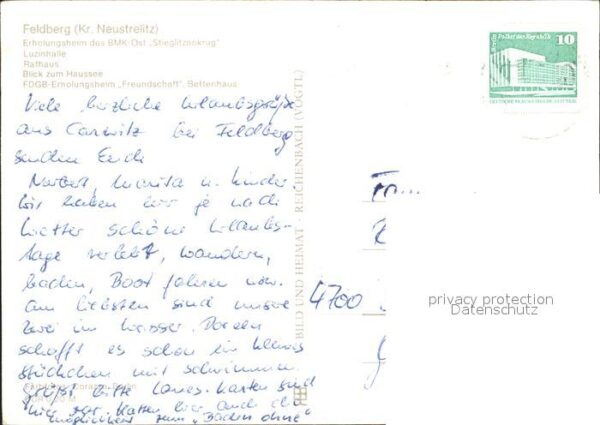 Feldberg (Kr. Neustrelitz)
Erholungsheim des BMK-Ost "Stieglitzenkrug"
Luzinhalle
Rathaus
Blick zum Haussee
FDGB-Erholungsheim „Freundschaft", Bettenhaus
Viele herzliche Urlaubsgrüße
aus Carwitz bei Feldberg
senden Euch
Norbert, Marita u. Kinder.
Wir haben hier je nach
Wetter schöne Urlaubs-
tage verlebt, wandern,
baden, Boot fahren usw.
Am liebsten sind unsere
zwei im Wasser. Doreen
schafft es schon ein kleines
stückchen mit schwimmen.
grüßt bitte Karten sind
hier rar. Hatten hier auch die
Möglichkeit zum „Baden ohne"
BILD UND HEIMAT REICHENBACH (VOGTL)
10
Berlin, Palast der Republik
Fa...
4700
privacy protection
Datenschutz